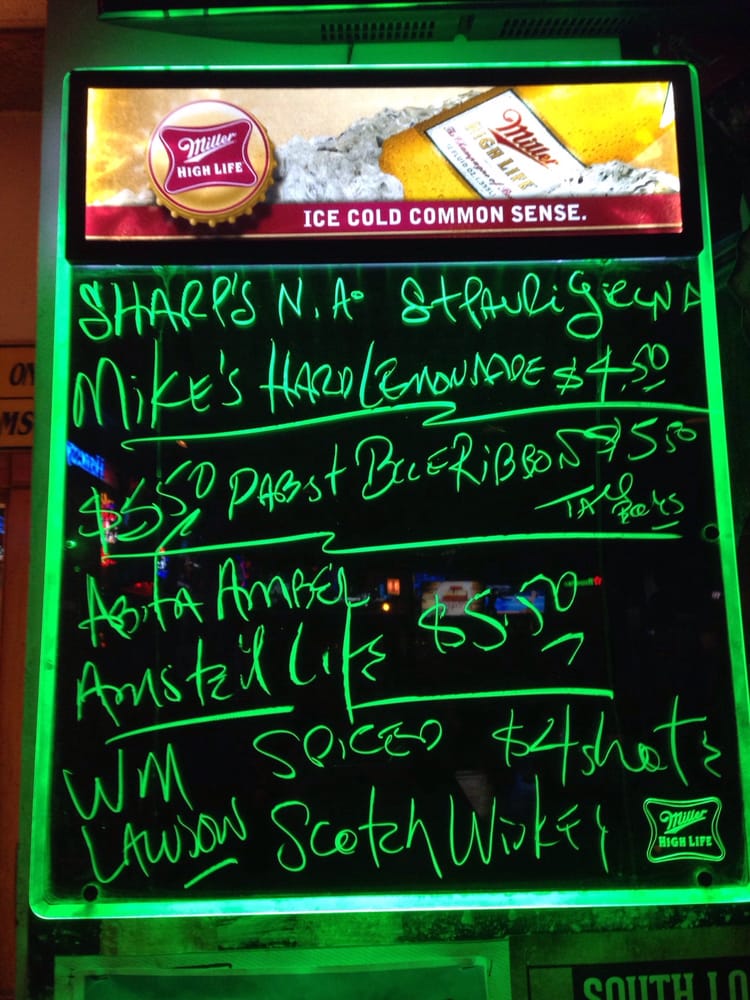 Miller
HIGH LIFE
Miller
HIGH LIFE
ICE COLD COMMON SENSE.
SHARP'S N.A. St Pauli Girl N A
MIKE'S HARD LEMONADE $4.50
$5.50 PABST BLUE RIBBON $5.50
TALL BOYS
ABITA AMBER
AMSTEL LITE $5.50
WM SPICED $4 shots
LAWSON Scotch WisKEY
Miller
HIGH LIFE
ON
MS
SOUTH LO